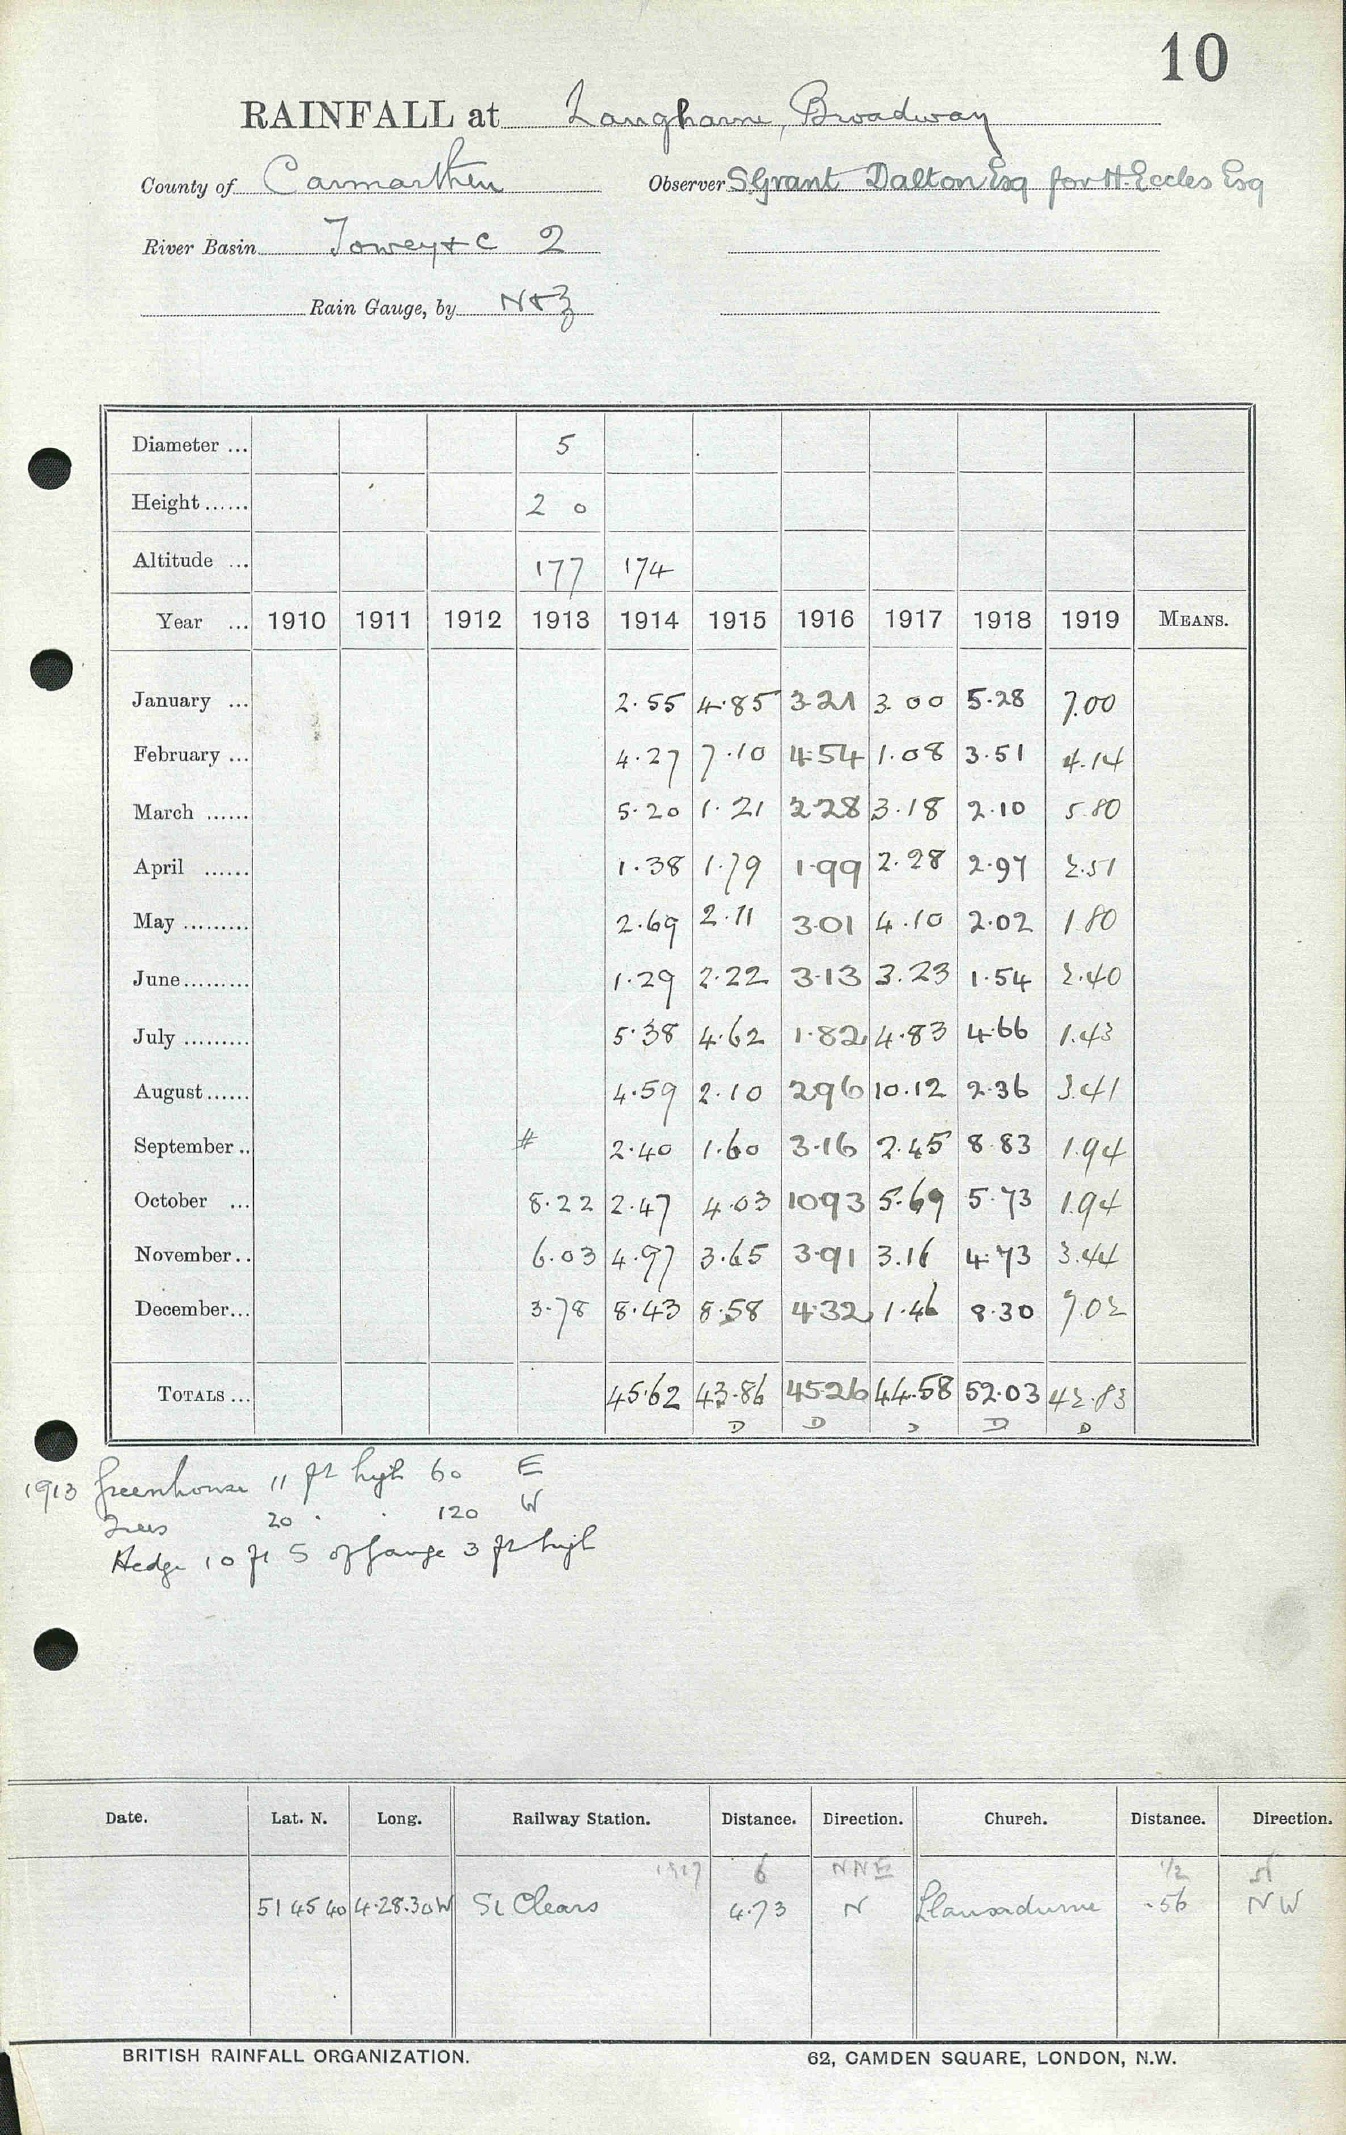 10
RAINFALL at Laugharne, Broadway
County of Carmarthen Observer S Grant Dalton Esq for H. Eccles Esq
River Basin Towey & C 2
Rain Gauge, by N & Z
Diameter ... 5
Height ...... 2 0
Altitude ... 177 174
Year ... 1910 1911 1912 1913 1914 1915 1916 1917 1918 1919 MEANS.
January ... 2.55 4.85 3.21 3.00 5.28 7.00
February ... 4.27 7.10 4.54 1.08 3.51 4.14
March ...... 5.20 1.21 2.28 3.18 2.10 5.80
April ...... 1.38 1.79 1.99 2.28 2.97 2.51
May ......... 2.69 2.11 3.01 4.10 2.02 1.80
June ......... 1.29 2.22 3.13 3.23 1.54 2.40
July ......... 5.38 4.62 1.82 4.83 4.66 1.43
August ...... 4.59 2.10 2.96 10.12 2.36 3.41
September .. # 2.40 1.60 3.16 2.45 8.83 1.94
October ... 8.22 2.47 4.03 10.93 5.69 5.73 1.94
November .. 6.03 4.97 3.65 3.91 3.16 4.73 3.44
December ... 3.78 8.43 8.58 4.32 1.46 8.30 7.02
TOTALS ... 45.62 43.86 45.26 44.58 52.03 42.83
D D D D D
1913 Greenhouse 11 ft high 60 E
Trees 20 " " 120 W
Hedge 10 ft S of gauge 3 ft high
Date. Lat. N. Long. Railway Station. Distance. Direction. Church. Distance. Direction.
1917 6 NNE 1/2 N
51 45 40 4.28.30W St Clears 4.73 N Llansadurne .56 NW
BRITISH RAINFALL ORGANIZATION. 62, CAMDEN SQUARE, LONDON, N.W.